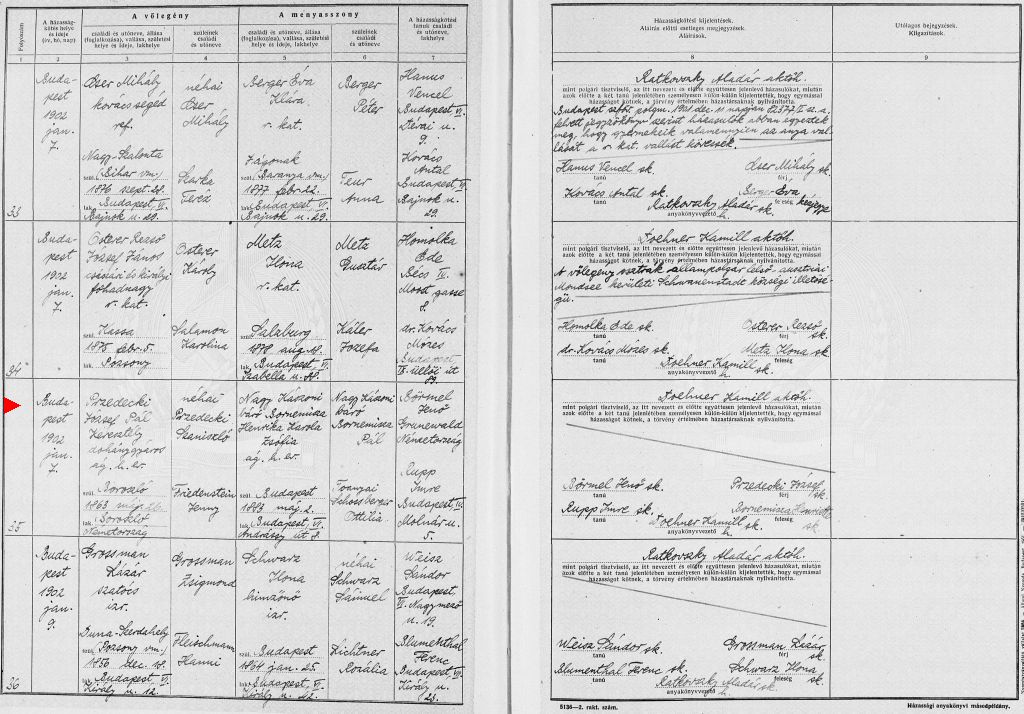 Folyószám
A házasság-
kötés helye
és ideje
(év, hó, nap)
A vőlegény
családi és utóneve, állása
(foglalkozása), vallása, születési
helye és ideje, lakhelye
szüleinek
családi
és utóneve
A menyasszony
családi és utóneve, állása
(foglalkozása), vallása, születési
helye és ideje, lakhelye
szüleinek
családi
és utóneve
A házasságkötési
tanuk családi
és utóneve,
lakhelye
Házasságkötési kijelentések.
Aláírás előtti esetleges megjegyzések.
Aláírások.
Utólagos bejegyzések.
Kiigazítások.
1 2 3 4 5 6 7 8 9
33
Buda-
pest
1902
jan.
7.
Oser Mihály
kovács segéd
ref.
Nagy-Szalonta
szül. (Bihar vm.)
1876 szept. 28.
lak. Budapest, VI.
Bajnok u. 29.
néhai
Oser
Mihály
Szarka
Terez
Berger Éva
Klára
r. kat.
Zsgonak
szül. (Baranya vm.)
1877 febr. 22.
lak. Budapest, VI.
Bajnok u. 29.
Berger
Péter
Teur
Anna
Hanus
Vencel
Budapest, VI.
Dévai u.
9.
Kovács
Antal
Budapest, VI.
Bajnok u.
29.
Ratkovszky Aladár aktóh.
mint polgári tisztviselő, az itt nevezett és előtte együttesen jelenlevő házasulókat, miután
azok előtte a két tanú jelenlétében személyesen külön-külön kijelentették, hogy egymással
házasságot kötnek, a törvény értelmében házastársaknak nyilvánította.
felvett jegyzőkönyv szerint házasulók abban egyeztek
meg, hogy gyermekeik valamennyien az anya val-
lását a r. kat. vallást kövessék.
Hanus Vencel sk.
tanú
Oser Mihály sk.
férj
Kovács Antal sk.
tanú
Berger Éva kézjegye
feleség
Ratkovszky Aladár sk.
anyakönyvvezető h.
34
Buda-
pest
1902
jan.
7.
Osterer Rezső
József János
császári és királyi
főhadnagy
r. kat.
szül. Kassa
1875 febr. 5.
lak. Pozsony
Osterer
Károly
Salamon
Karolina
Metz
Ilona
r. kat.
szül. Salzburg
1878 aug. 18.
lak. Budapest, VI.
Izabella u. 88.
Metz
Gusztáv
Káler
Jozefa
Homolka
Ede
Bécs IV.
Mozst gasse
8.
dr. Kovács
Mózes
Budapest
IX. üllői út
89.
Foehner Kamill aktóh.
mint polgári tisztviselő, az itt nevezett és előtte együttesen jelenlevő házasulókat, miután
azok előtte a két tanú jelenlétében személyesen külön-külön kijelentették, hogy egymással
házasságot kötnek, a törvény értelmében házastársaknak nyilvánította.
A vőlegény osztrák állampolgár felső-ausztriai
Mondsee kerületi Schwanenstadt községi illetősé-
gű.
Homolka Ede sk.
tanú
Osterer Rezső sk.
férj
dr. Kovács Mózes sk.
tanú
Metz Ilona sk.
feleség
Foehner Kamill sk.
anyakönyvvezető h.
35
Buda-
pest
1902
jan.
7.
Przedecki
József Pál
Keresztély
dohánygyáros
ág. h. ev.
szül. Boroszló
1863 máj. 26.
lak. Boroszló
Németország
néhai
Przedecki
Szaniszló
Friedenstein
Jenny
Nagy Kászoni
báró Bornemisza
Henrika Karola
Zsófia
ág. h. ev.
szül. Budapest
1883 máj. 2.
lak. Budapest, VI.
Andrássy út 8.
Nagy Kászoni
báró
Bornemisza
Pál
Tornyai
Schossberger
Ottilia
Börmel
Jenő
Grunewald
Németország
Rupp
Imre
Budapest, IV.
Molnár u.
5.
Foehner Kamill aktóh.
mint polgári tisztviselő, az itt nevezett és előtte együttesen jelenlevő házasulókat, miután
azok előtte a két tanú jelenlétében személyesen külön-külön kijelentették, hogy egymással
házasságot kötnek, a törvény értelmében házastársaknak nyilvánította.
Börmel Jenő sk.
tanú
Przedecki József sk.
férj
Rupp Imre sk.
tanú
Bornemisza Henriette sk.
feleség
Foehner Kamill sk.
anyakönyvvezető h.
36
Buda-
pest
1902
jan.
9.
Grossman
Lázár
szatócs
izr.
Duna-Szerdahely
szül. (Pozsony vm.)
1856 dec. 18.
lak. Budapest, VI.
Király u. 12.
Grossman
Zsigmond
Fleischmann
Hanni
Schwarz
Ilona
himzőnő
izr.
szül. Budapest
1864 jan. 25.
lak. Budapest, VI.
Király u. 12.
néhai
Schwarz
Sámuel
Lichtner
Rozália
Weisz
Sándor
Budapest
VI. Nagymező
u. 19.
Blumenthal
Ferenc
Budapest, VI.
Király u.
23.
Ratkovszky Aladár aktóh.
mint polgári tisztviselő, az itt nevezett és előtte együttesen jelenlevő házasulókat, miután
azok előtte a két tanú jelenlétében személyesen külön-külön kijelentették, hogy egymással
házasságot kötnek, a törvény értelmében házastársaknak nyilvánította.
Weisz Sándor sk.
tanú
Grossman Lázár sk.
férj
Blumenthal Ferenc sk.
tanú
Schwarz Ilona sk.
feleség
Ratkovszky Aladár sk.
anyakönyvvezető h.
5136—2. rakt. szám.
Házassági anyakönyvi másodpéldány.